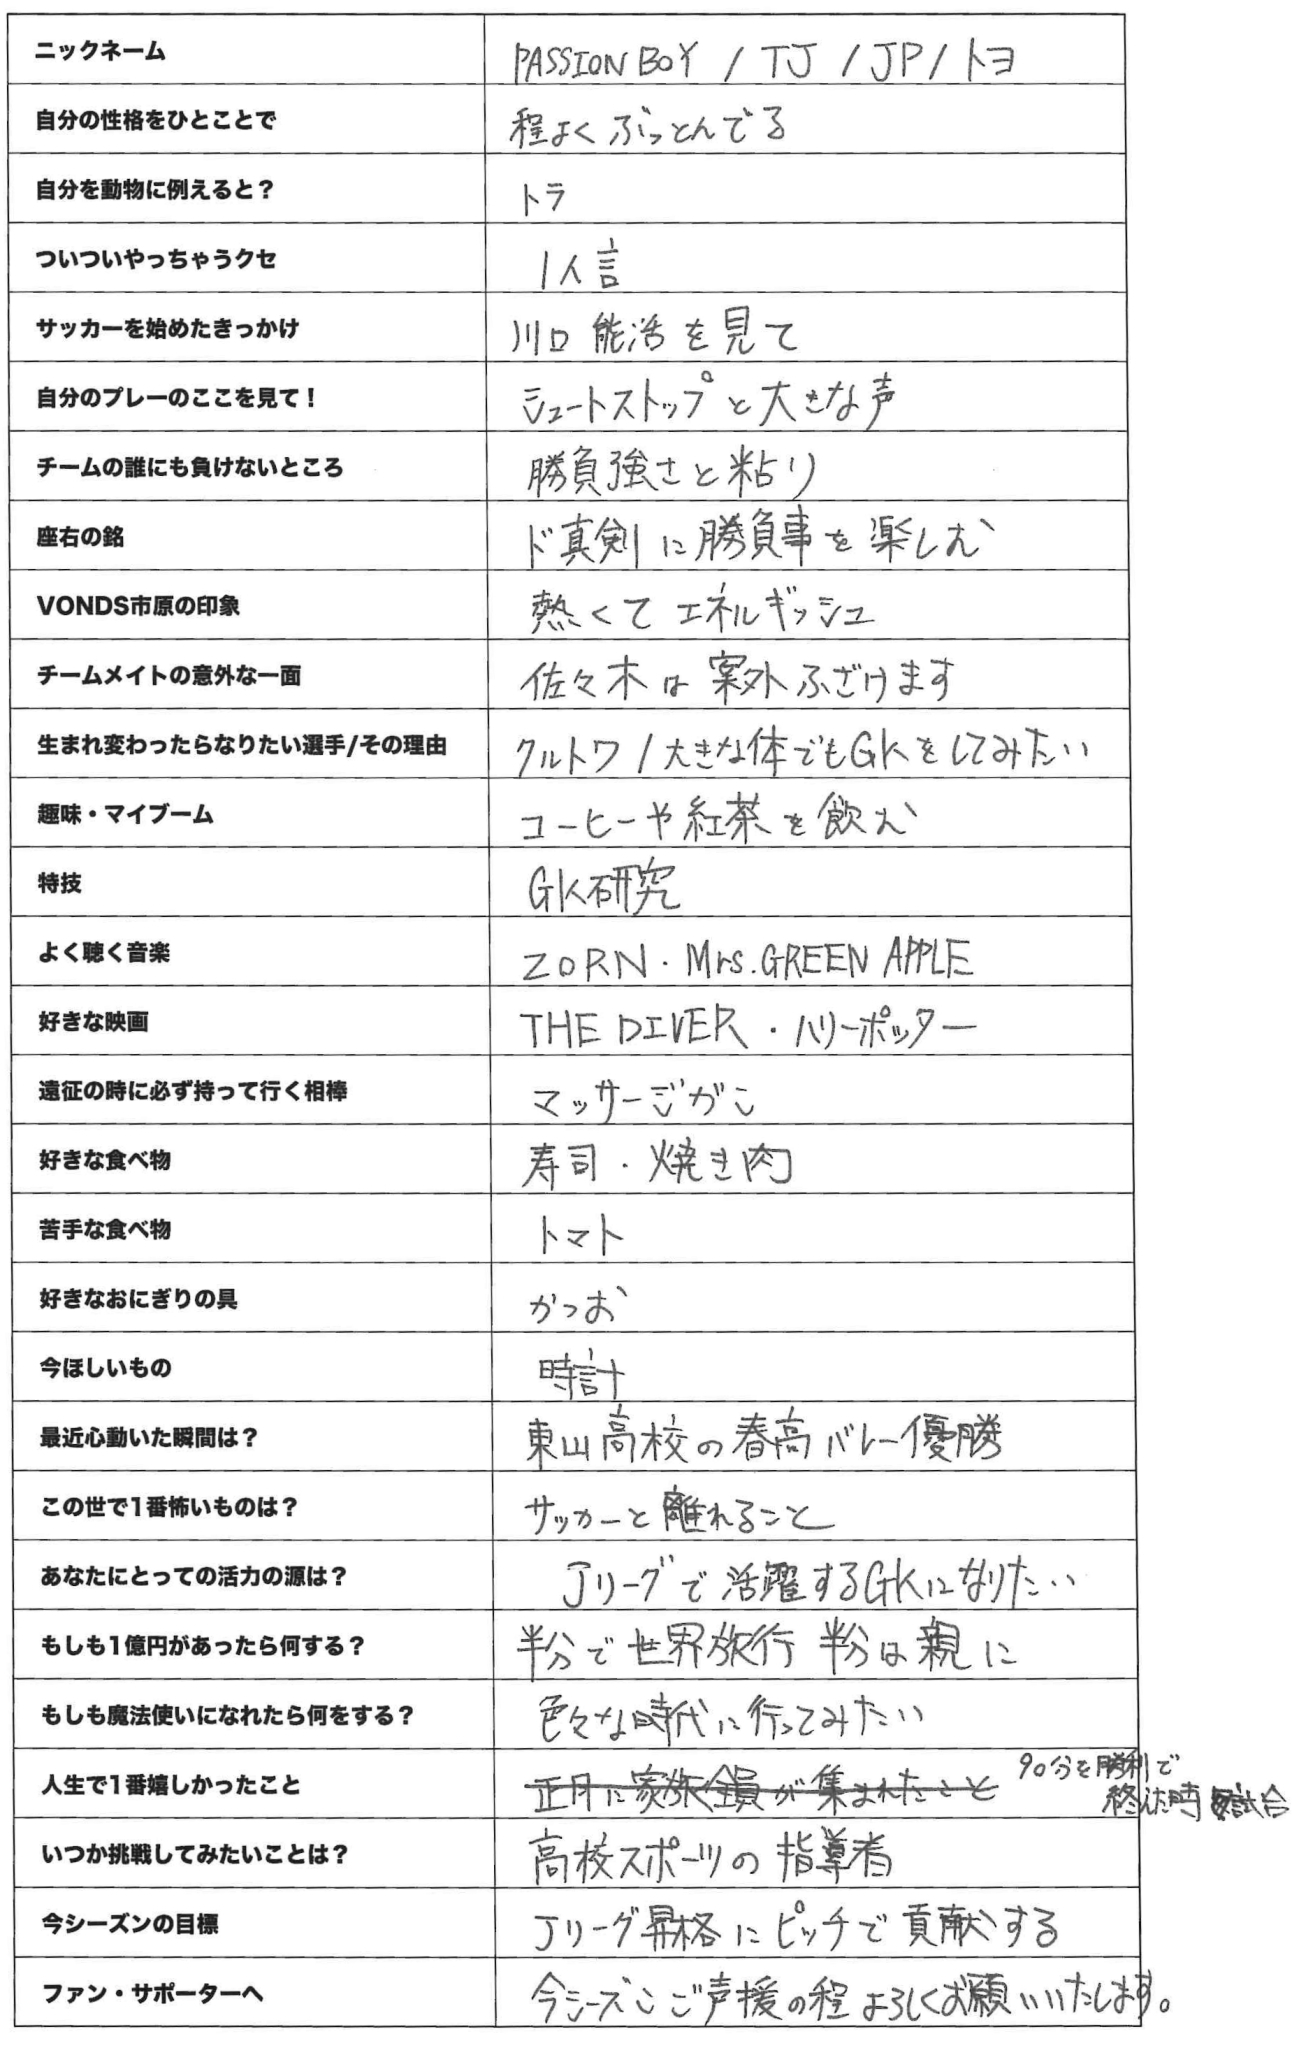 ニックネーム
PASSION BOY / TJ / JP / トヨ
自分の性格をひとことで
程よくぶっとんでる
自分を動物に例えると？
トラ
ついついやっちゃうクセ
1人言
サッカーを始めたきっかけ
川口能活を見て
自分のプレーのここを見て！
シュートストップと大きな声
チームの誰にも負けないところ
勝負強さと粘り
座右の銘
ド真剣に勝負事を楽しむ
VONDS市原の印象
熱くてエネルギッシュ
チームメイトの意外な一面
佐々木は案外ふざけます
生まれ変わったらなりたい選手/その理由
クルトワ / 大きな体でもGKをしてみたい
趣味・マイブーム
コーヒーや紅茶を飲む
特技
GK研究
よく聴く音楽
ZORN・Mrs.GREEN APPLE
好きな映画
THE DIVER・ハリーポッター
遠征の時に必ず持って行く相棒
マッサージガン
好きな食べ物
寿司・焼き肉
苦手な食べ物
トマト
好きなおにぎりの具
かつお
今ほしいもの
時計
最近心動いた瞬間は？
東山高校の春高バレー優勝
この世で1番怖いものは？
サッカーと離れること
あなたにとっての活力の源は？
Jリーグで活躍するGKになりたい
もしも1億円があったら何する？
半分で世界旅行 半分は親に
もしも魔法使いになれたら何をする？
色々な時代に行ってみたい
人生で1番嬉しかったこと
正月に家族全員が集まれたこと
90分を勝利で
終えた時 試合
いつか挑戦してみたいことは？
高校スポーツの指導者
今シーズンの目標
Jリーグ昇格にピッチで貢献する
ファン・サポーターへ
今シーズンご声援の程よろしくお願いいたします。